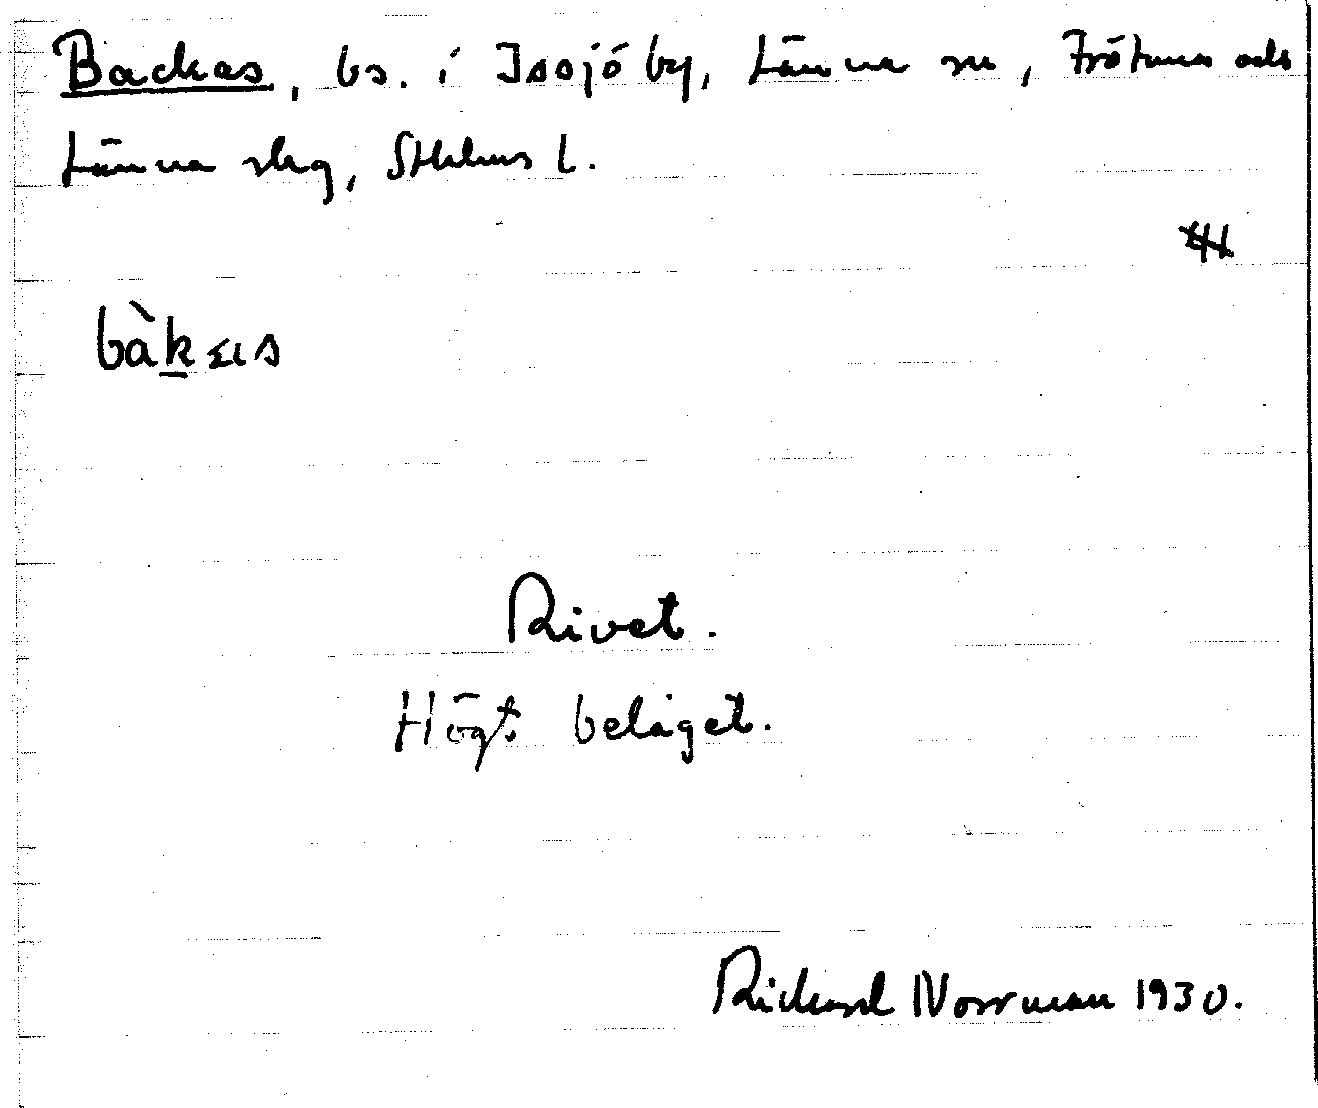 Backas, bs. i Issjö by, Länna sn, Frötuna och
Länna skg, Sthlms l.
Rivet.
Högt beläget.
Rickard Norrman 1930.